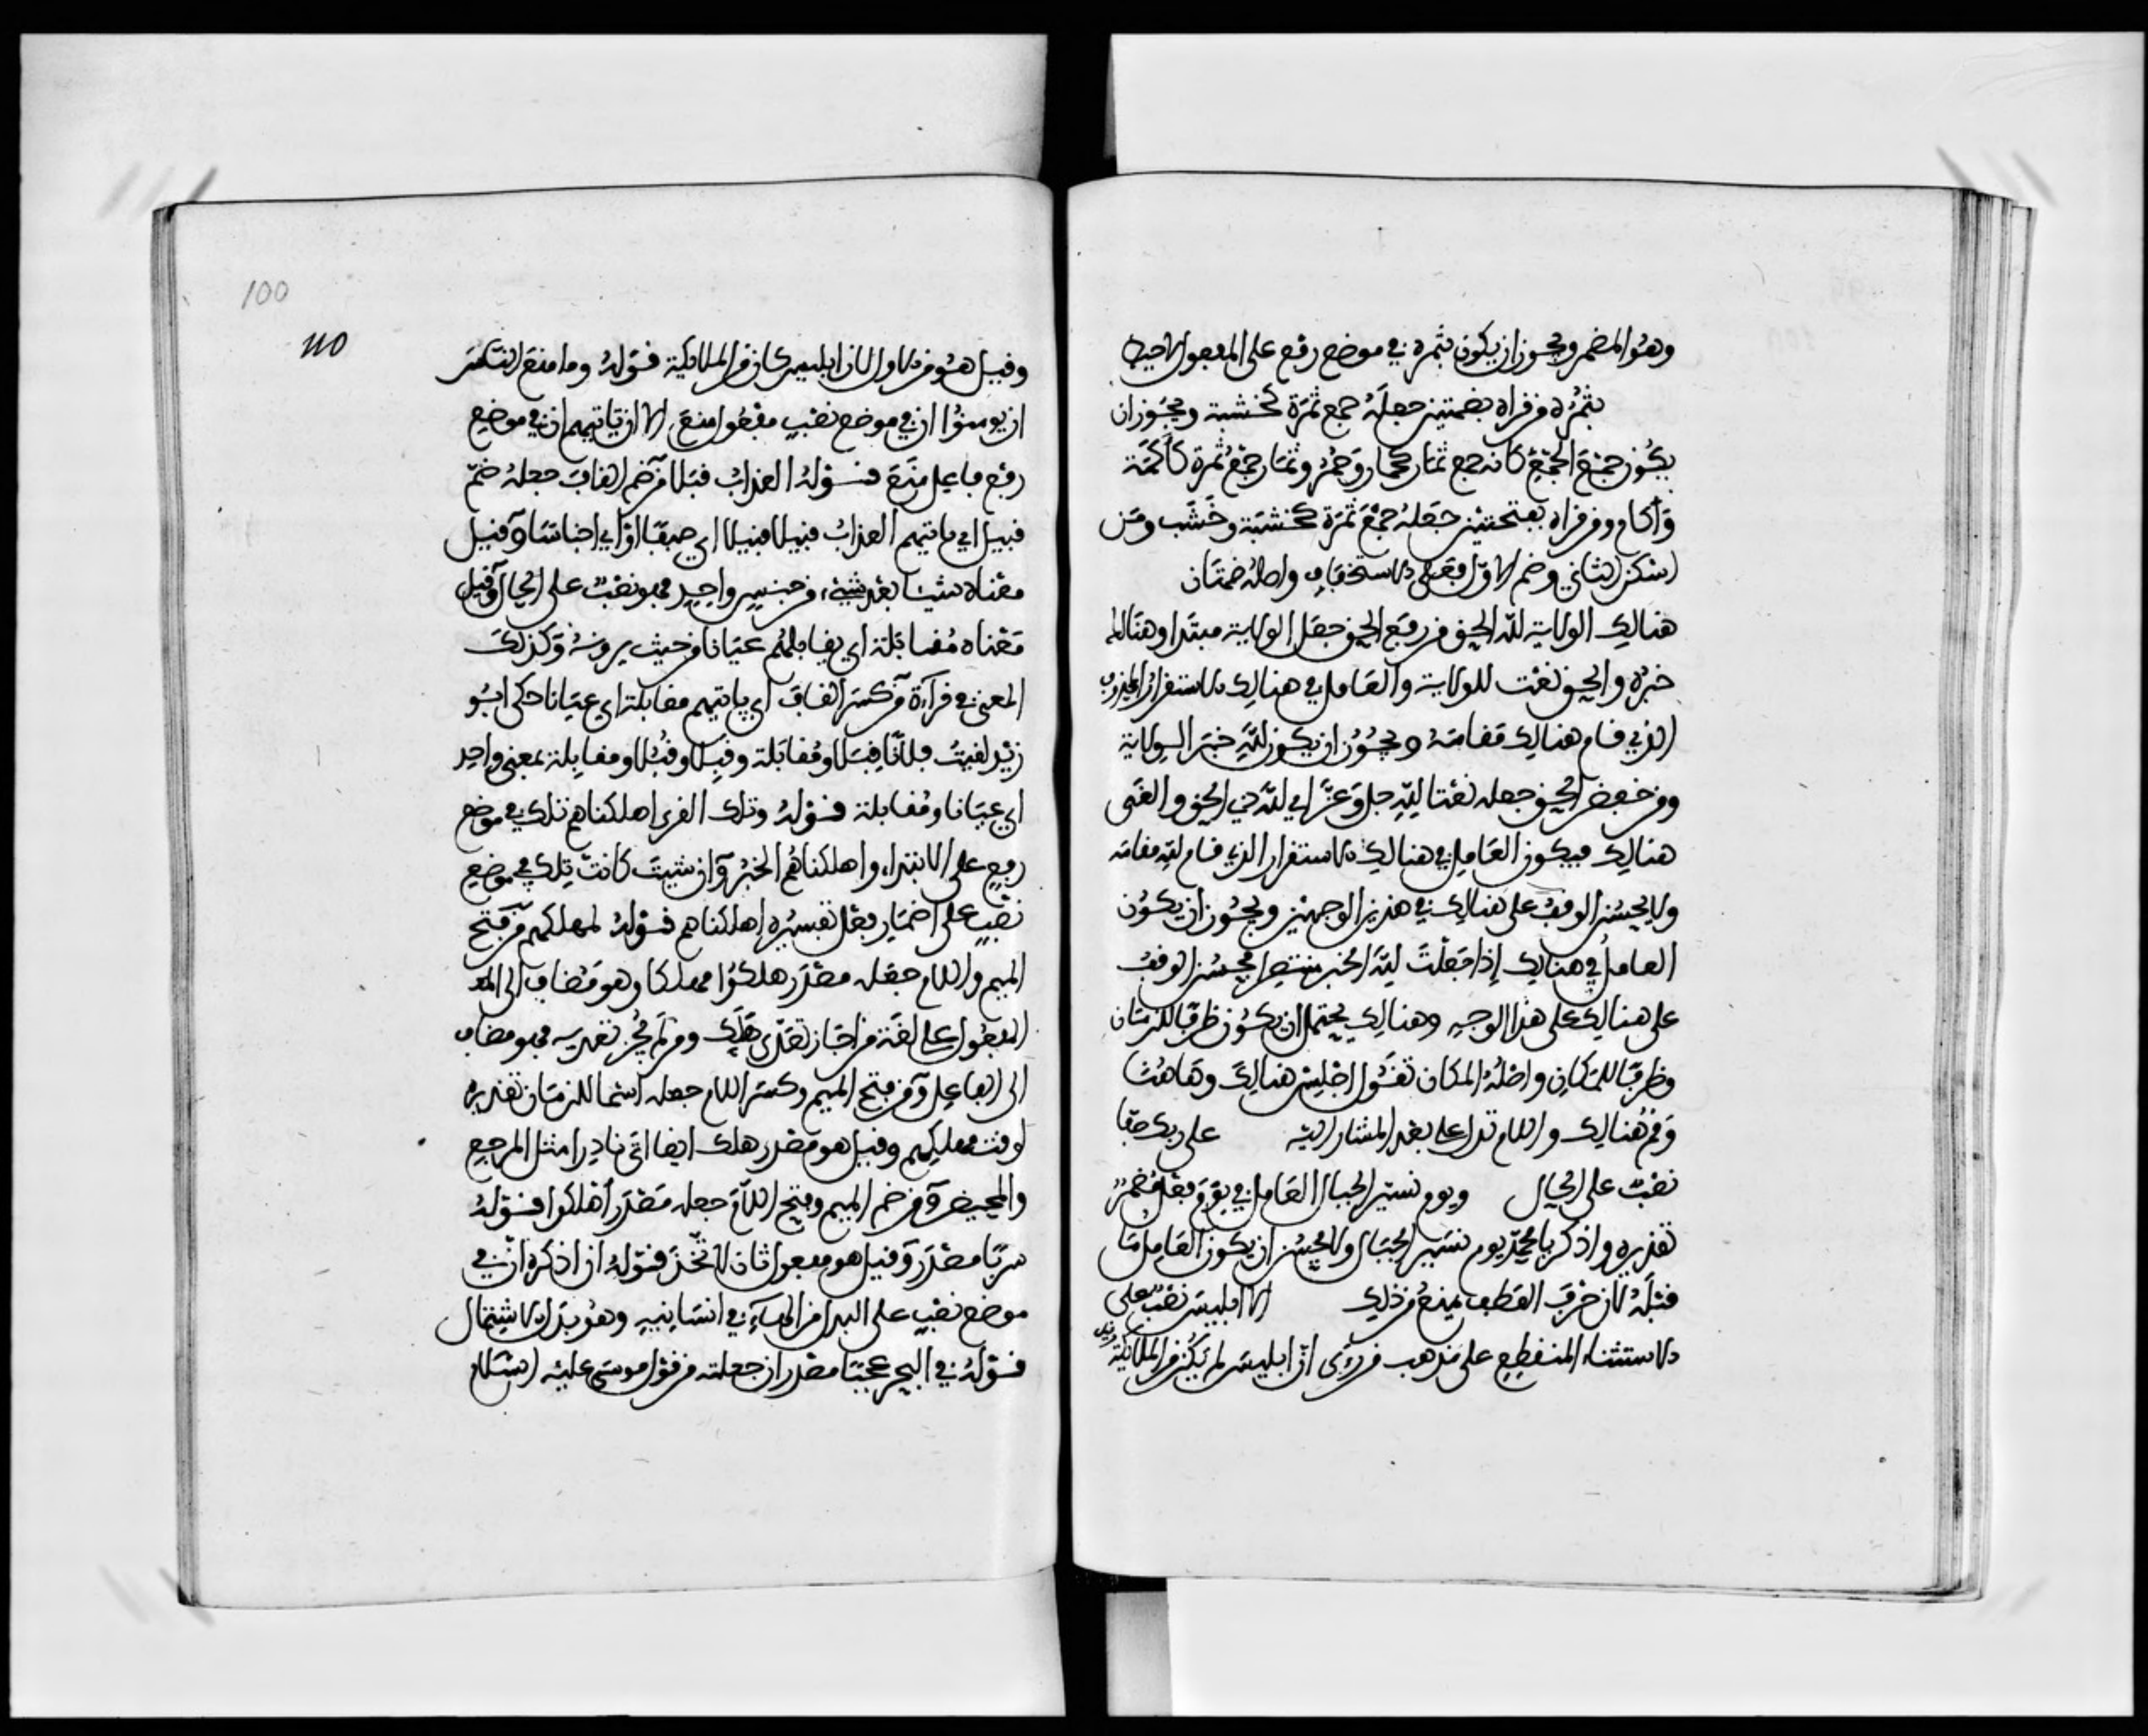 وهو المضمر ويجوز ان يكون بثمره في موضع رفع على المفعول لاحيط
بثمره ومن قراه بضمتين جعله جمع ثمرة كخشبة ويجوز ان
يكون جمع الجمع كانه جمع ثمار كحمار وحمر وثمار جمع ثمرة كأكمة
وأكام ومن قراه بفتحتين جعله جمع ثمرة كخشبة وخشب ومن
اسكن الثاني وضم الاول فعلى الاستخفاف واصله ضمتان
هنالك الولاية لله الحق من رفع الحق جعل الولاية مبتدا وهنالك
خبره والحق نعت للولاية والعامل في هنالك الاستقرار المحذوف
الذي قام هنالك مقامه ويجوز ان يكون لله خبر الولاية
ومن خفض الحق جعله نعتا لله جل وعز اي لله ذي الحق والغى
هنالك فيكون العامل في هنالك الاستقرار الذي قام لله مقامه
ولا يحسن الوقف على هنالك في هذين الوجهين ويجوز ان يكون
العامل في هنالك إذا جعلت لله الخبر منتصرا فيحسن الوقف
على هنالك على هذا الوجه وهنالك يحتمل ان يكون ظرفا للزمان
وظرفا للمكان واصله المكان تقول اجلس هنالك وهاهنا
وقم هنالك واللام تدل على بعد المشار اليه على ربك صفا
نصب على الحال ويوم نسير الجبال العامل في يوم فعل مضمر
تقديره واذكر يا محمد يوم نسير الجبال ولا يحسن ان يكون العامل ما
قبله لان حرف العطف يمنع من ذلك الا ابليس نصب على
الاستثناء المنقطع على مذهب من رءى ان ابليس لم يكن من الملائكة
100
110
وقيل هو من الاول لان ابليس كان من الملائكة قوله وما منع الناس
ان يومنوا ان في موضع نصب مفعول منع الا ان تاتيهم ان في موضع
رفع فاعل منع قوله العذاب قبلا من ضم القاف جعله جمع
قبيل اي ياتيهم العذاب قبيلا قبيلا اي صنفا اي اجناسا وقيل
معناه شيئا بعد شيء من جنس واحد فهو نصب على الحال وقيل
معناه مقابلة اي يقابلهم عيانا من حيث يرونه وكذلك
المعنى في قراءة من كسر القاف اي ياتيهم مقابلة اي عيانا حكى ابو
زيد لقيت فلانا قبلا ومقابلة وقبلا وقبلا ومقابلة بمعنى واحد
اي عيانا ومقابلة قوله وتلك القرى اهلكناهم تلك في موضع
رفع على الابتداء واهلكناهم الخبر وان شيت كانت تلك في موضع
نصب على اضمار فعل تفسيره إهلكناهم قوله لمهلكهم من فتح
الميم واللام جعله مصدر هلكوا مهلكا وهو مضاف الى
المفعول على لغة من اجاز تعدى هلك ومن لم يجز تعديه فهو مضاف
الى الفاعل ومن فتح الميم وكسر اللام جعله اسما للزمان تقديره
لوقت مهلكهم وقيل هو مصدر هلك ايضا اتى نادرا مثل المرجع
والمحيض ومن ضم الميم وفتح اللام جعله مصدر أهلكوا قوله
سربا مصدر وقيل هو مفعول ثان لاتخذ قوله ان اذكره ان في
موضع نصب على البدل من الهاء في انسانيه وهو بدل الاشتمال
قوله في البحر عجبا مصدر ان جعلته من قول موسى عليه السلام